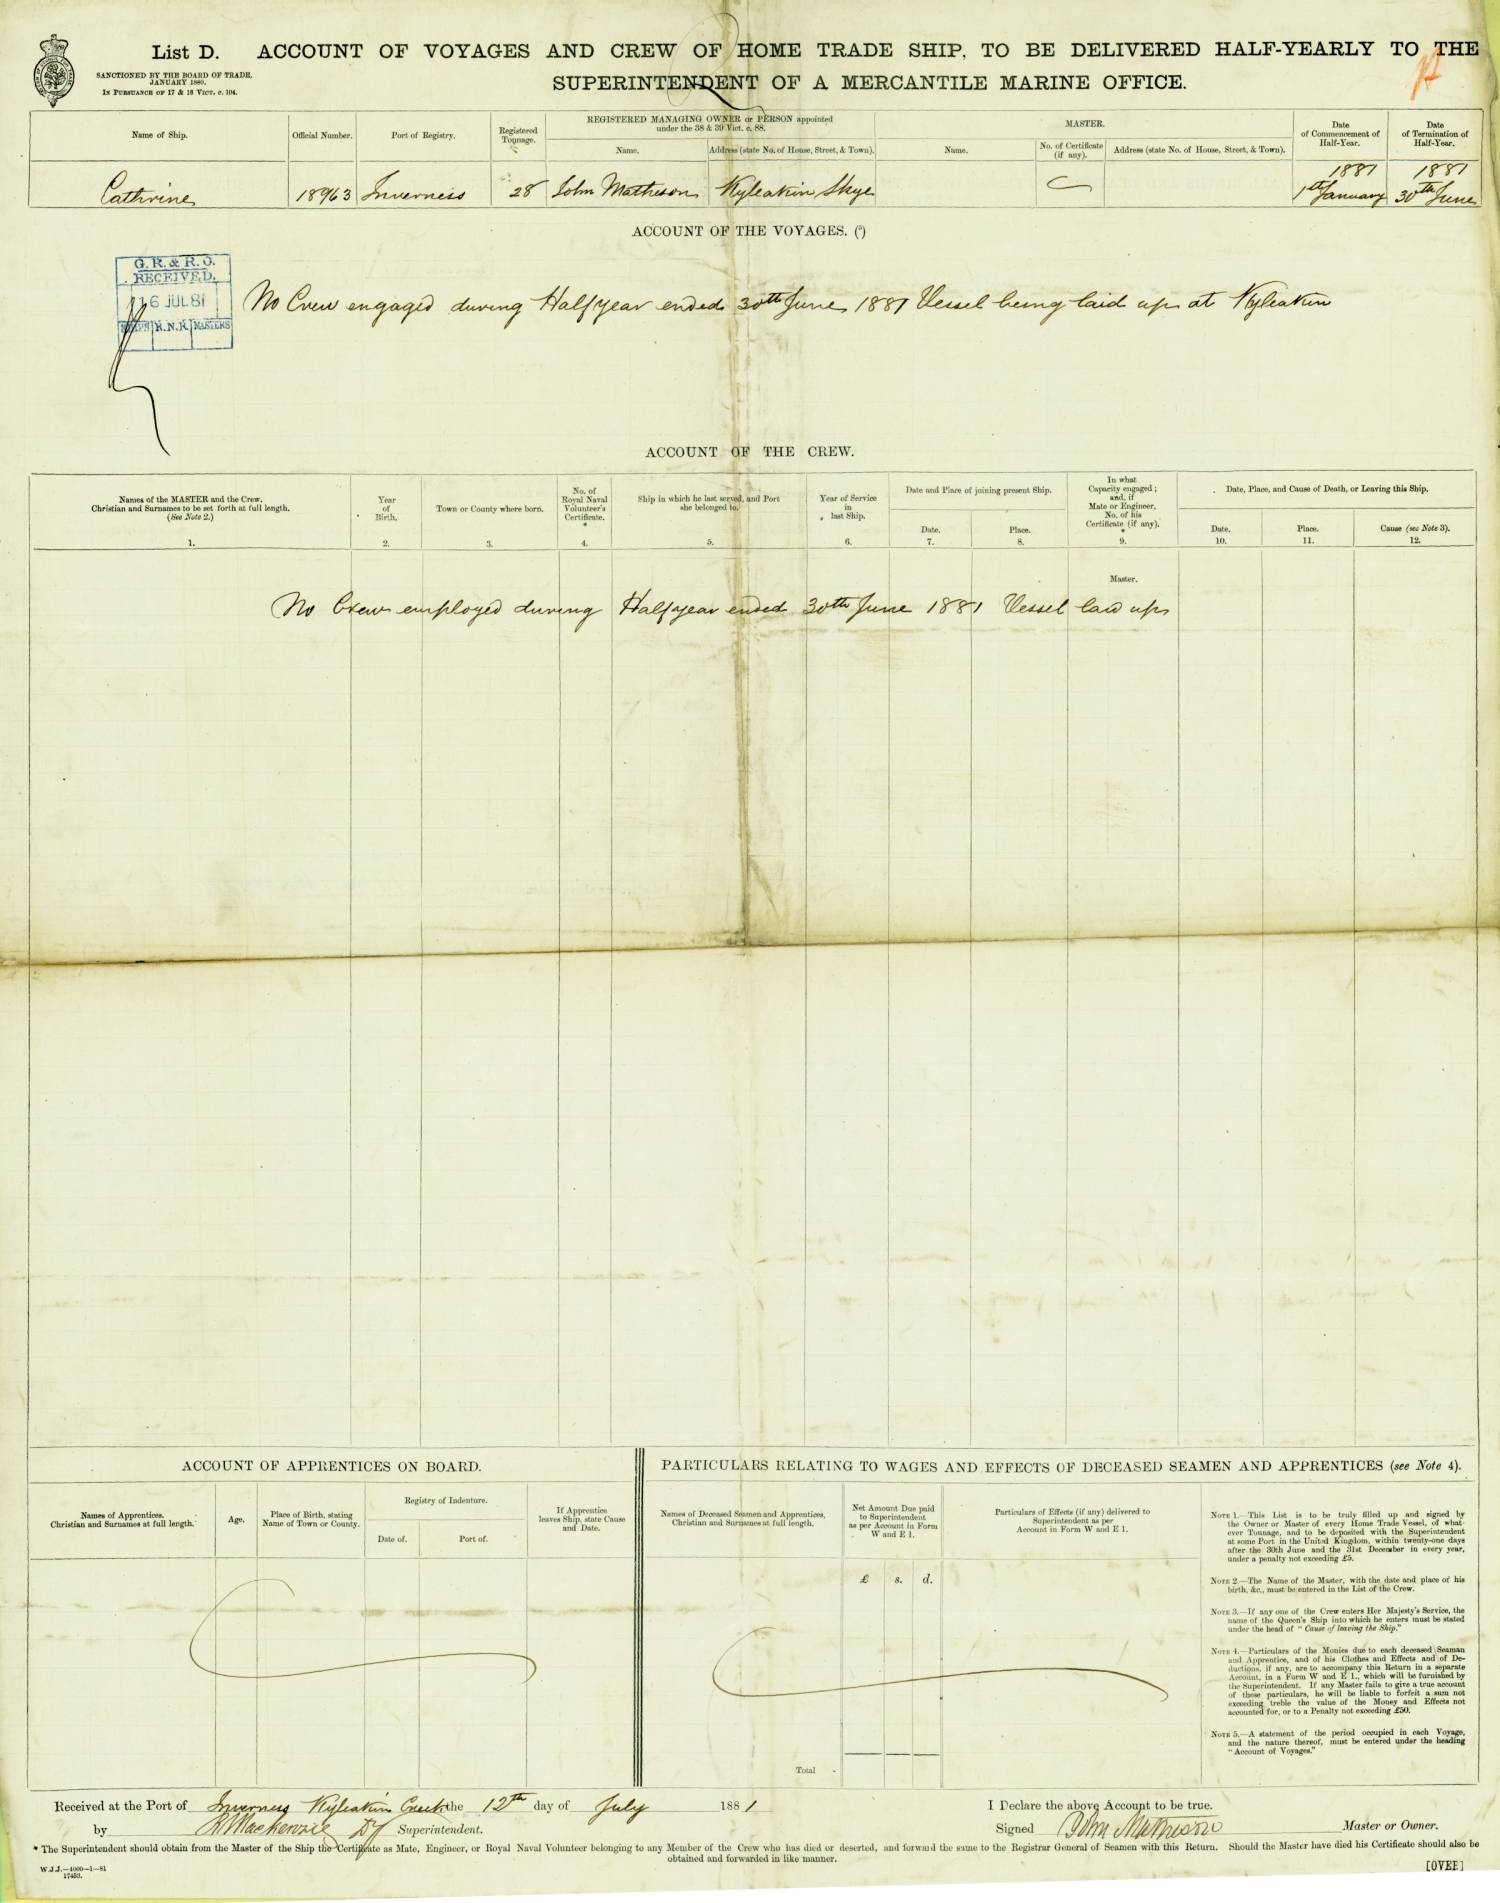 List D. ACCOUNT OF VOYAGES AND CREW OF HOME TRADE SHIP, TO BE DELIVERED HALF-YEARLY TO THE
SUPERINTENDENT OF A MERCANTILE MARINE OFFICE.
SANCTIONED BY THE BOARD OF TRADE,
JANUARY 1880.
IN PURSUANCE OF 17 & 18 VICT. c. 104.
Name of Ship.
Official Number.
Port of Registry.
Registered
Tonnage.
REGISTERED MANAGING OWNER or PERSON appointed
under the 38 & 39 Vict. c. 88.
Name.
Address (state No. of House, Street, & Town).
MASTER.
Name.
No. of Certificate
(if any).
Address (state No. of House, Street, & Town).
Date
of Commencement of
Half-Year.
Date
of Termination of
Half-Year.
Cathrine 18963 Inverness 28 John Matheson Kyleakin Skye
1881
1st January
1881
30th June
ACCOUNT OF THE VOYAGES. (⁵)
G. R. & R. O.
RECEIVED.
16 JUL 81
R.N.R. MASTERS
No Crew engaged during Halfyear ended 30th June 1881 Vessel being laid up at Kyleakin
ACCOUNT OF THE CREW.
Names of the MASTER and the Crew.
Christian and Surnames to be set forth at full length.
(See Note 2.)
1.
Year
of
Birth.
2.
Town or County where born.
3.
No. of
Royal Naval
Volunteer's
Certificate.
*
4.
Ship in which he last served, and Port
she belonged to.
5.
Year of Service
in
last Ship.
6.
Date and Place of joining present Ship.
Date.
7.
Place.
8.
In what
Capacity engaged;
and, if
Mate or Engineer,
No. of his
Certificate (if any).
*
9.
Date, Place, and Cause of Death, or Leaving this Ship.
Date.
10.
Place.
11.
Cause (see Note 3).
12.
Master.
No Crew employed during Halfyear ended 30th June 1881 Vessel laid up
ACCOUNT OF APPRENTICES ON BOARD.
Names of Apprentices.
Christian and Surnames at full length.
Age.
Place of Birth, stating
Name of Town or County.
Registry of Indenture.
Date of.
Port of.
If Apprentice
leaves Ship, state Cause
and Date.
PARTICULARS RELATING TO WAGES AND EFFECTS OF DECEASED SEAMEN AND APPRENTICES (see Note 4).
Names of Deceased Seamen and Apprentices,
Christian and Surnames at full length.
Net Amount Due paid
to Superintendent
as per Account in Form
W and E 1.
Particulars of Effects (if any) delivered to
Superintendent as per
Account in Form W and E 1.
£ s. d.
Total
NOTE 1.—This List is to be truly filled up and signed by
the Owner or Master of every Home Trade Vessel, of what-
ever Tonnage, and to be deposited with the Superintendent
at some Port in the United Kingdom, within twenty-one days
after the 30th June and the 31st December in every year,
under a penalty not exceeding £5.
NOTE 2.—The Name of the Master, with the date and place of his
birth, &c., must be entered in the List of the Crew.
NOTE 3.—If any one of the Crew enters Her Majesty's Service, the
name of the Queen's Ship into which he enters must be stated
under the head of "Cause of leaving the Ship."
NOTE 4.—Particulars of the Monies due to each deceased Seaman
and Apprentice, and of his Clothes and Effects and of De-
ductions, if any, are to accompany this Return in a separate
Account, in a Form W and E 1., which will be furnished by
the Superintendent. If any Master fails to give a true account
of these particulars, he will be liable to forfeit a sum not
exceeding treble the value of the Money and Effects not
accounted for, or to a Penalty not exceeding £50.
NOTE 5.—A statement of the period occupied in each Voyage,
and the nature thereof, must be entered under the heading
"Account of Voyages."
Received at the Port of Inverness Kyleakin Creek the 12th day of July 1881
by Mackenzie Dy Superintendent.
I Declare the above Account to be true.
Signed John Matheson Master or Owner.
* The Superintendent should obtain from the Master of the Ship the Certificate as Mate, Engineer, or Royal Naval Volunteer belonging to any Member of the Crew who has died or deserted, and forward the same to the Registrar General of Seamen with this Return. Should the Master have died his Certificate should also be
obtained and forwarded in like manner.
W.J.J.—4000—1—81
17453.
[OVER]